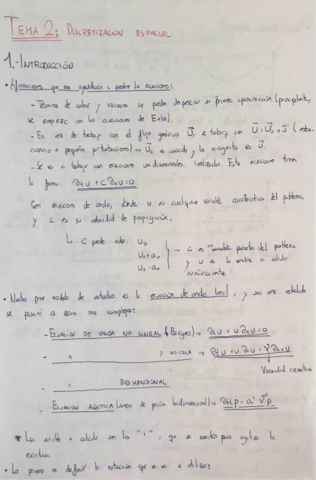 TEMA 2: DISCRETIZACIÓN ESPACIAL
1.-INTRODUCCIÓN
• Afirmaciones que nos ayudarán a resolver las ecuaciones:
- Términos de calor y viscosos se pueden despreciar en primera aproximación (principalmente,
se empieza con las ecuaciones de Euler).
- En vez de trabajar con el flujo genérico U, se trabaja con U = U₀ + U' (
+ pequeñas perturbaciones) → U₀ es conocido y la incógnita es U'.
- Se va a trabajar con ecuaciones unidimensionales, linealizadas. Estas ecuaciones tienen
la forma: ∂tu + c ∂xu = 0
Son ecuaciones de ondas, donde u es cualquier variable característica del problema
y c es su velocidad de propagación.
↳ c puede valer: u₀
u₀ + a₀
u₀ - a₀
→ c es variable del problema
y u es la variable a calcular
numéricamente.
• Nuestro primer modelo de estudio es la ecuación de onda lineal, y una vez
se pasará a casos más complejos:
- ECUACIÓN DE ONDA NO LINEAL (Burgers) → ∂tu + u∂xu = 0
- " y VISCOSA → ∂tu + u∂xu = ν∂xxu
Viscosidad cinemática
- " BIDIMENSIONAL
- ECUACIÓN ACÚSTICA (ondas de presión bidimensional) → ∂ttp = a²∇²p
* Las variables a calcular son las " ' ", que se omiten para agilizar la
escritura
• Lo primero es definir la notación que se va a utilizar: